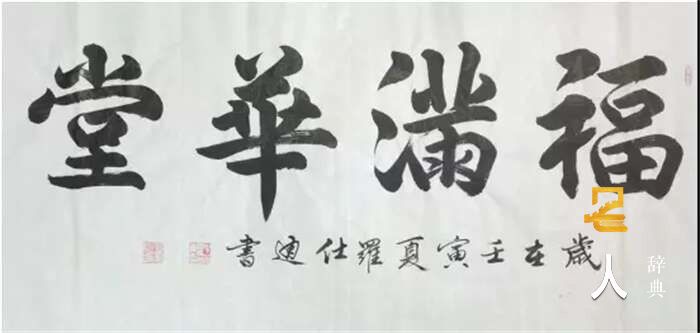 福滿華堂
歲在壬寅夏羅仕迪書
人
辞典